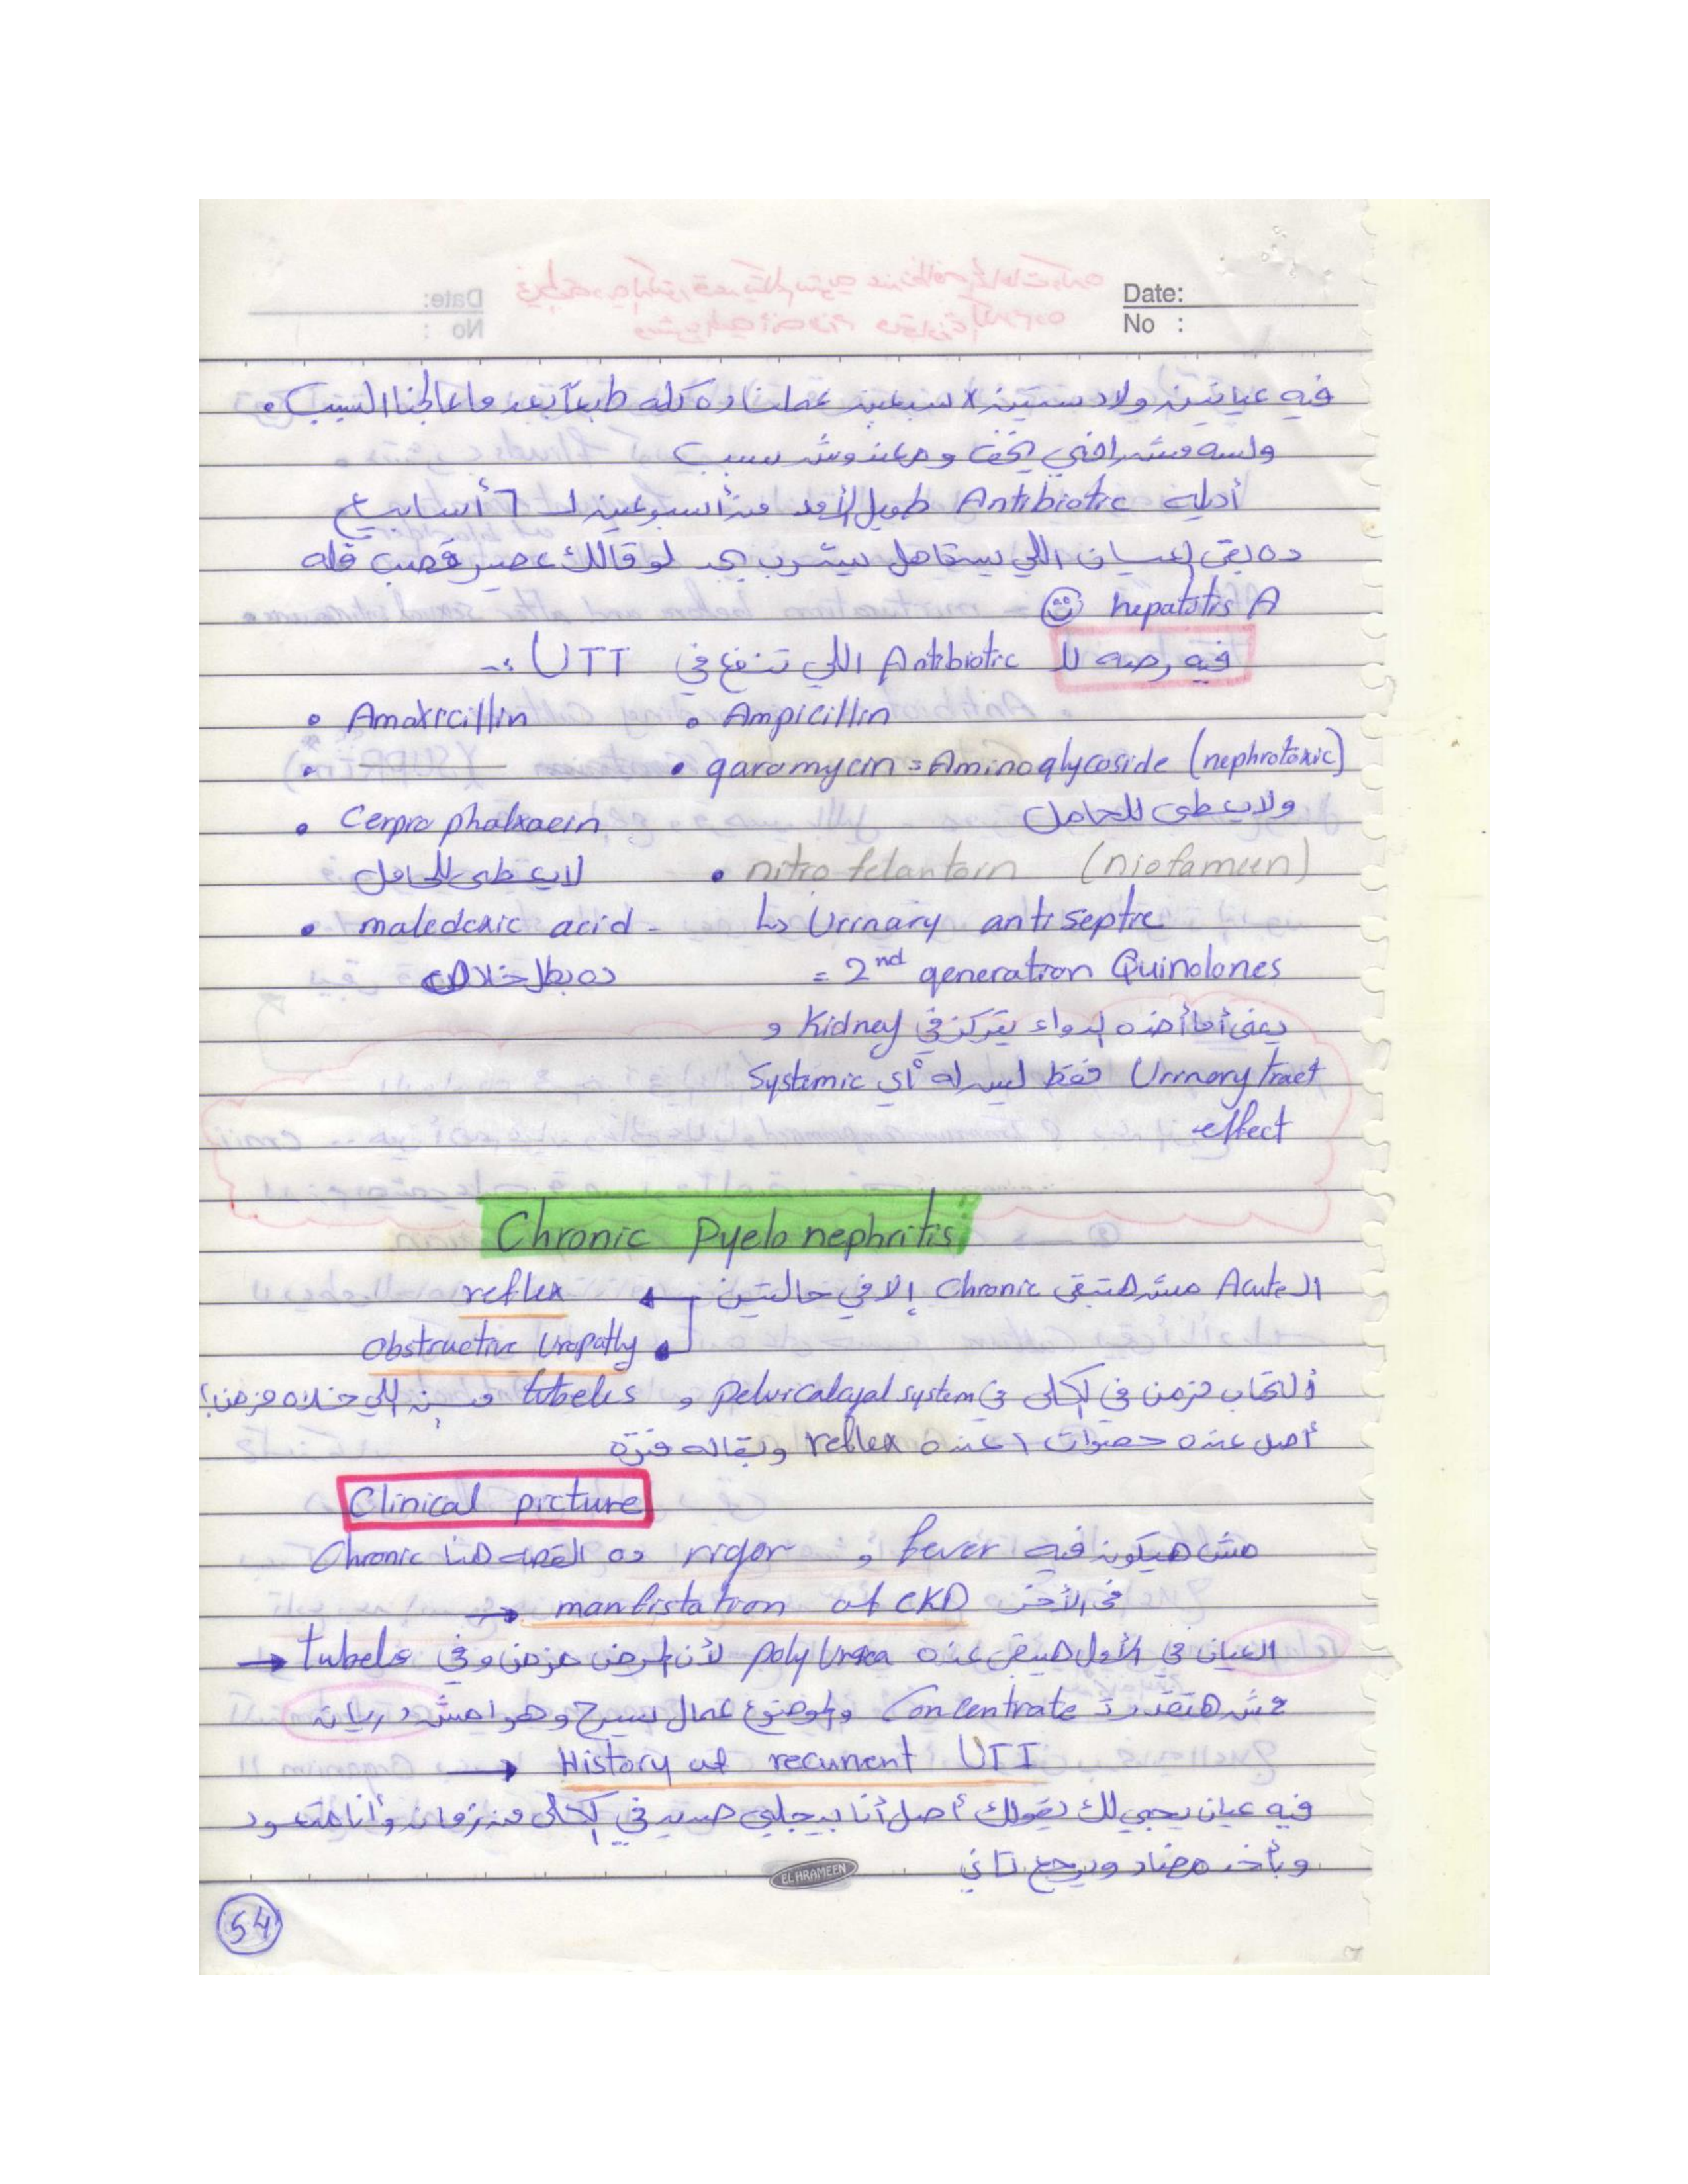 Date:
No :
فيه عيانين ولاد ستين x سبعين عملنا ده كله طبعاً بعد ما عالجنا السبب.
ولسه مش راضي يخف ومعندوش سبب
أديله Antibiotic طويل الأمد من أسبوعين لـ 6 أسابيع
ده بقى العيان اللي يستاهل بيشرب لو قالك عصير قصب قله
hepatitis A
فيه رصه للـ Antibiotic اللي تنفع في UTI :-
• Amoxicillin • Ampicillin
• garamycin = Aminoglycoside (nephrotoxic)
ولا يعطى للحامل
• Cerprophalxaein
لا يعطى للحامل • nitrofelantoin (niofameen)
• maledexic acid - ↳ Urinary antiseptic
ده بطل خلاص = 2nd generation Quinolones
يعني أما أخذه الدواء يتركز في Kidney و
Urinary tract فقط ليس له أي Systemic
effect
Chronic Pyelonephritis
الـ Acute مش هتبقى Chronic إلا في حالتين ← reflex
Obstructive Uropathy
إلتهاب مزمن في الكلى في Pelvicalcyal system و tubels مين اللي خلاه مزمن؟
أصل عنده حصوات / عنده reflex وبقاله فترة
Clinical picture
مش هيكون فيه fever و rigor ده القصه هنا Chronic
في الأخر manfistation of CKD →
العيان في الأول هيبقى عنده polyUrea لأن المرض مزمن وفي tubels →
مش هتقدر Concentrate والموضوع عمال يسرح وهو مش دريان
→ History of recurrent UTI
فيه عيان يجي لك يقولك أصل أنا بيجلي صديد في الكلى من زمان وأنا متعود
وبأخد مضاد ويرجع تاني
EL HRAMEEN
54